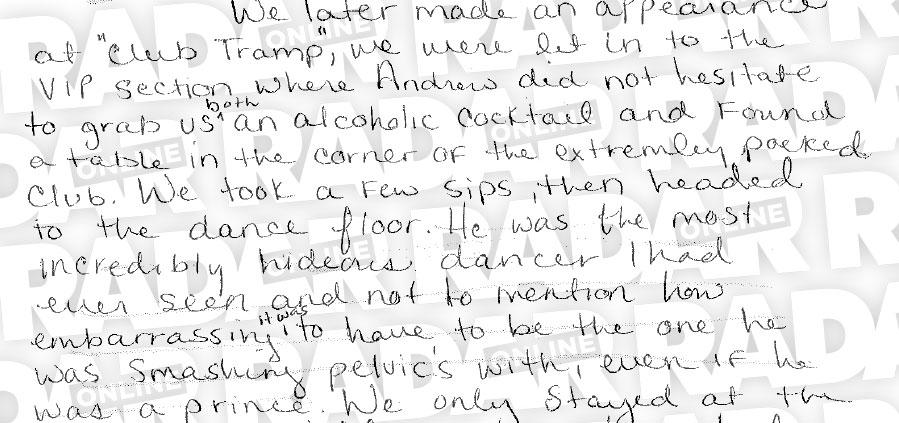 We later made an appearance
at "Club Tramp", we were let in to the
VIP section, where Andrew did not hesitate
to grab us both an alcoholic cocktail and Found
a table in the corner of the extremley packed
Club. We took a few sips, then headed
to the dance floor. He was the most
incredibly hideous dancer I had
ever seen and not to mention how
embarrassing it was to have to be the one he
was smashing pelvic's with, even if he
was a prince. We only stayed at the
RADAR ONLINE